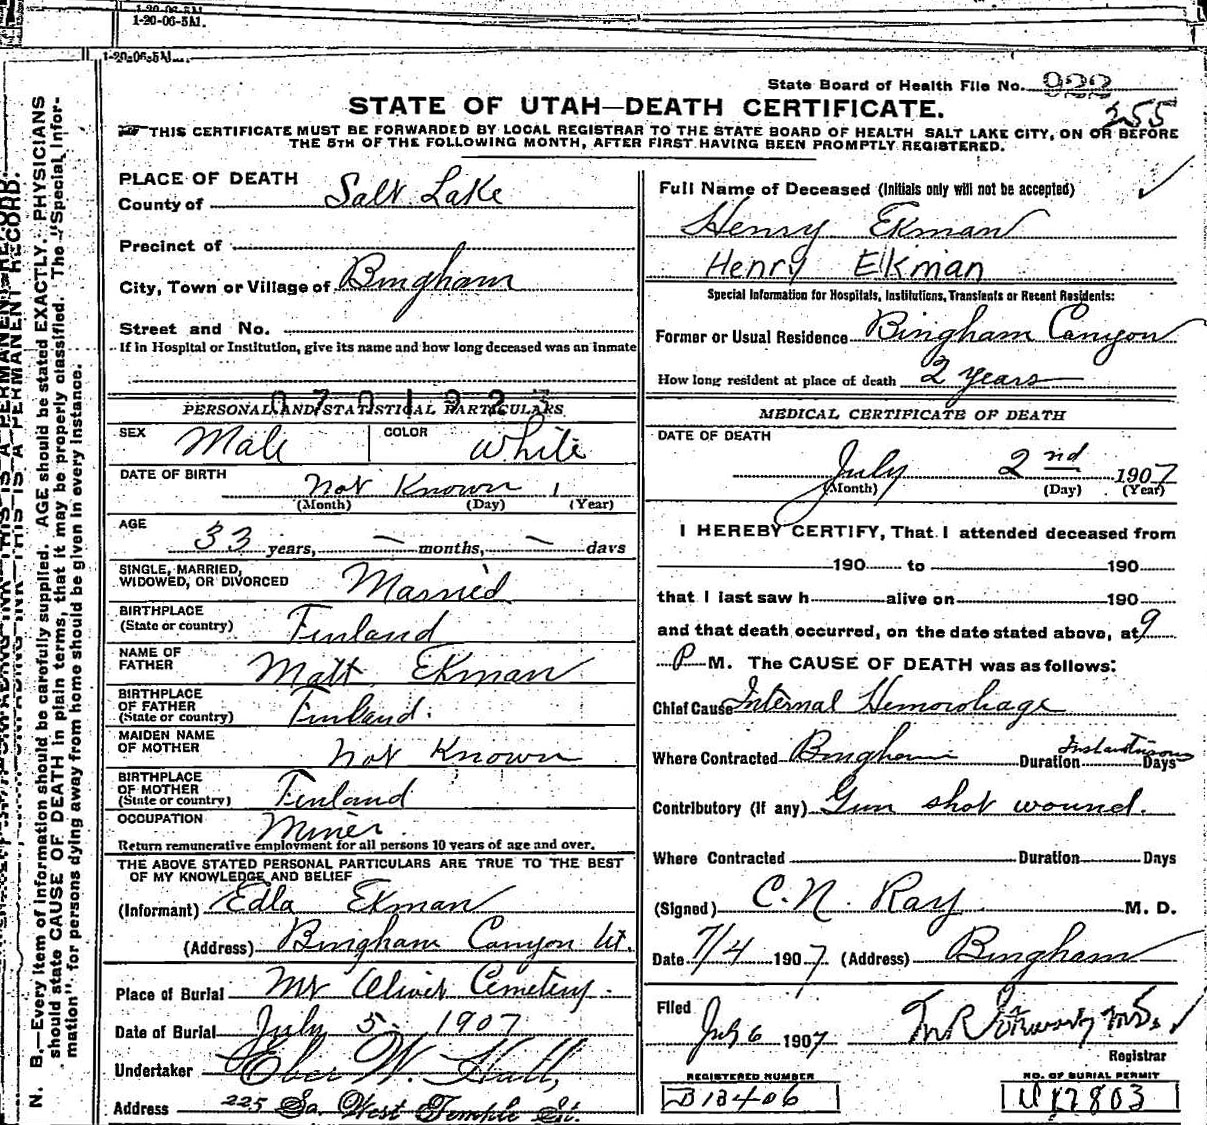 1-20-06-5M.
1-20-06-5M.
1-20-06-5M.
State Board of Health File No. 922
255
STATE OF UTAH—DEATH CERTIFICATE.
THIS CERTIFICATE MUST BE FORWARDED BY LOCAL REGISTRAR TO THE STATE BOARD OF HEALTH SALT LAKE CITY, ON OR BEFORE
THE 5TH OF THE FOLLOWING MONTH, AFTER FIRST HAVING BEEN PROMPTLY REGISTERED.
PLACE OF DEATH
County of Salt Lake
Precinct of
City, Town or Village of Bingham
Street and No.
If in Hospital or Institution, give its name and how long deceased was an inmate
0701923
PERSONAL AND STATISTICAL PARTICULARS
SEX Male COLOR White
DATE OF BIRTH not Known
(Month) (Day) (Year)
AGE
33 years, — months, — days
SINGLE, MARRIED,
WIDOWED, OR DIVORCED Married
BIRTHPLACE
(State or country) Finland
NAME OF
FATHER Matt Ekman
BIRTHPLACE
OF FATHER
(State or country) Finland.
MAIDEN NAME
OF MOTHER not Known
BIRTHPLACE
OF MOTHER
(State or country) Finland
OCCUPATION Miner.
Return remunerative employment for all persons 10 years of age and over.
THE ABOVE STATED PERSONAL PARTICULARS ARE TRUE TO THE BEST
OF MY KNOWLEDGE AND BELIEF
(Informant) Edla Ekman
(Address) Bingham Canyon Ut.
Place of Burial Mt Olivet Cemetery.
Date of Burial July 5- 1907
Undertaker Eber W. Hall,
Address 225 So. West Temple St.
Full Name of Deceased (Initials only will not be accepted)
Henry Ekman
Henry Ekman
Special Information for Hospitals, Institutions, Transients or Recent Residents:
Former or Usual Residence Bingham Canyon
How long resident at place of death 2 years
MEDICAL CERTIFICATE OF DEATH
DATE OF DEATH
July 2nd 1907
(Month) (Day) (Year)
I HEREBY CERTIFY, That I attended deceased from
190 to 190
that I last saw h alive on 190
and that death occurred, on the date stated above, at 9
P M. The CAUSE OF DEATH was as follows:
Chief Cause Internal Hemorohage
Where Contracted Bingham Duration Days
Contributory (if any) Gun shot wound.
Where Contracted Duration Days
(Signed) C. N. Ray M. D.
Date 7/4 1907 (Address) Bingham
Filed
July 6 1907
Registrar
REGISTERED NUMBER NO. OF BURIAL PERMIT
B13406 17803
N. B.—Every item of information should be carefully supplied. AGE should be stated EXACTLY. PHYSICIANS
should state CAUSE OF DEATH in plain terms, that it may be properly classified. The "Special Infor-
mation" for persons dying away from home should be given in every instance.
THIS IS A PERMANENT RECORD.